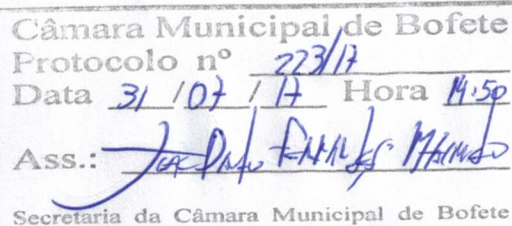 Câmara Municipal de Bofete
Protocolo nº 223/17
Data 31 / 07 / 17 Hora 14:50
Ass.:
Secretaria da Câmara Municipal de Bofete